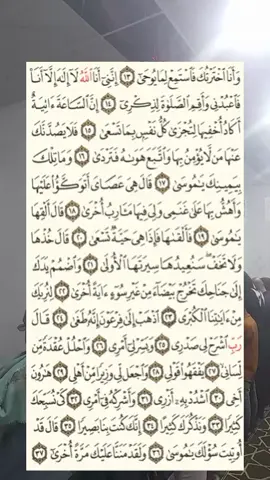 وَأَنَا ٱخْتَرْتُكَ فَٱسْتَمِعْ لِمَا يُوحَىٰٓ ١٣ إِنَّنِىٓ أَنَا ٱللَّهُ لَآ إِلَٰهَ إِلَّآ أَنَا۠
فَٱعْبُدْنِى وَأَقِمِ ٱلصَّلَوٰةَ لِذِكْرِىٓ ١٤ إِنَّ ٱلسَّاعَةَ ءَاتِيَةٌ
أَكَادُ أُخْفِيهَا لِتُجْزَىٰ كُلُّ نَفْسٍۭ بِمَا تَسْعَىٰ ١٥ فَلَا يَصُدَّنَّكَ
عَنْهَا مَن لَّا يُؤْمِنُ بِهَا وَٱتَّبَعَ هَوَىٰهُ فَتَرْدَىٰ ١٦ وَمَا تِلْكَ
بِيَمِينِكَ يَٰمُوسَىٰ ١٧ قَالَ هِىَ عَصَاىَ أَتَوَكَّؤُا۟ عَلَيْهَا
وَأَهُشُّ بِهَا عَلَىٰ غَنَمِى وَلِىَ فِيهَا مَـَٔارِبُ أُخْرَىٰ ١٨ قَالَ أَلْقِهَا
يَٰمُوسَىٰ ١٩ فَأَلْقَىٰهَا فَإِذَا هِىَ حَيَّةٌ تَسْعَىٰ ٢٠ قَالَ خُذْهَا
وَلَا تَخَفْ سَنُعِيدُهَا سِيرَتَهَا ٱلْأُولَىٰ ٢١ وَٱضْمُمْ يَدَكَ
إِلَىٰ جَنَاحِكَ تَخْرُجْ بَيْضَآءَ مِنْ غَيْرِ سُوٓءٍ ءَايَةً أُخْرَىٰ ٢٢ لِنُرِيَكَ
مِنْ ءَايَٰتِنَا ٱلْكُبْرَى ٢٣ ٱذْهَبْ إِلَىٰ فِرْعَوْنَ إِنَّهُۥ طَغَىٰ ٢٤ قَالَ
رَبِّ ٱشْرَحْ لِى صَدْرِى ٢٥ وَيَسِّرْ لِىٓ أَمْرِى ٢٦ وَٱحْلُلْ عُقْدَةً مِّن
لِّسَانِى ٢٧ يَفْقَهُوا۟ قَوْلِى ٢٨ وَٱجْعَل لِّى وَزِيرًا مِّنْ أَهْلِى ٢٩ هَٰرُونَ
أَخِى ٣٠ ٱشْدُدْ بِهِۦٓ أَزْرِى ٣١ وَأَشْرِكْهُ فِىٓ أَمْرِى ٣٢ كَىْ نُسَبِّحَكَ
كَثِيرًا ٣٣ وَنَذْكُرَكَ كَثِيرًا ٣٤ إِنَّكَ كُنتَ بِنَا بَصِيرًا ٣٥ قَالَ قَدْ
أُوتِيتَ سُؤْلَكَ يَٰمُوسَىٰ ٣٦ وَلَقَدْ مَنَنَّا عَلَيْكَ مَرَّةً أُخْرَىٰٓ ٣٧